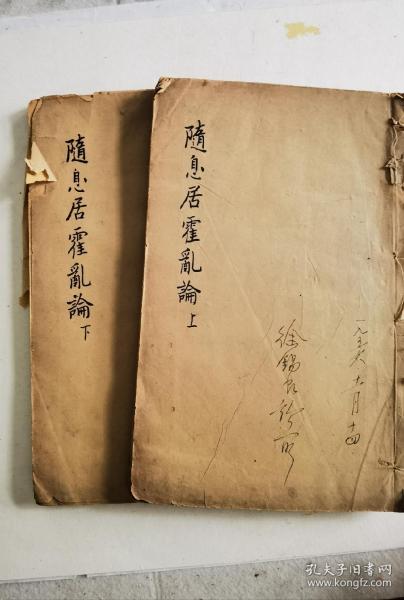 隨息居霍亂論上
一九五六 十一月 十四
徐錫
隨息居霍亂論下
孔夫子旧书网
www.kongfz.com